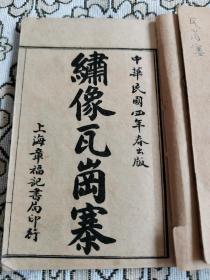 中華民國四年春出版
繡像瓦崗寨
上海章福記書局印行